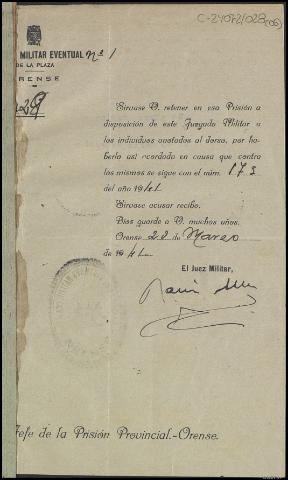 C-24072/028(06)
MILITAR EVENTUAL nº 1
DE LA PLAZA
RENSE
Sirvase V. retener en esa Prisión a
disposición de este Juzgado Militar a
los individuos anotados al dorso, por ha-
berlo así acordado en causa que contra
los mismos se sigue con el núm. 173
del año 1941
Sirvase acusar recibo.
Dios guarde a V. muchos años.
Orense 22 de Marzo
de 194
El Juez Militar,
Jefe de la Prisión Provincial.-Orense.